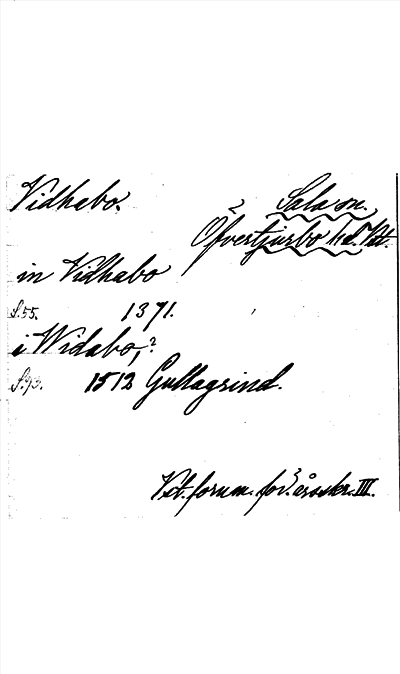 Vidhabo.
Sala sn.
Öfvertjurbo hd. Vst.
in Vidhabo
S. 55. 1371.
i Widabo,?
S. 93. 1512 Gullagrind.
Vst. fornm. för. årsskr. III.